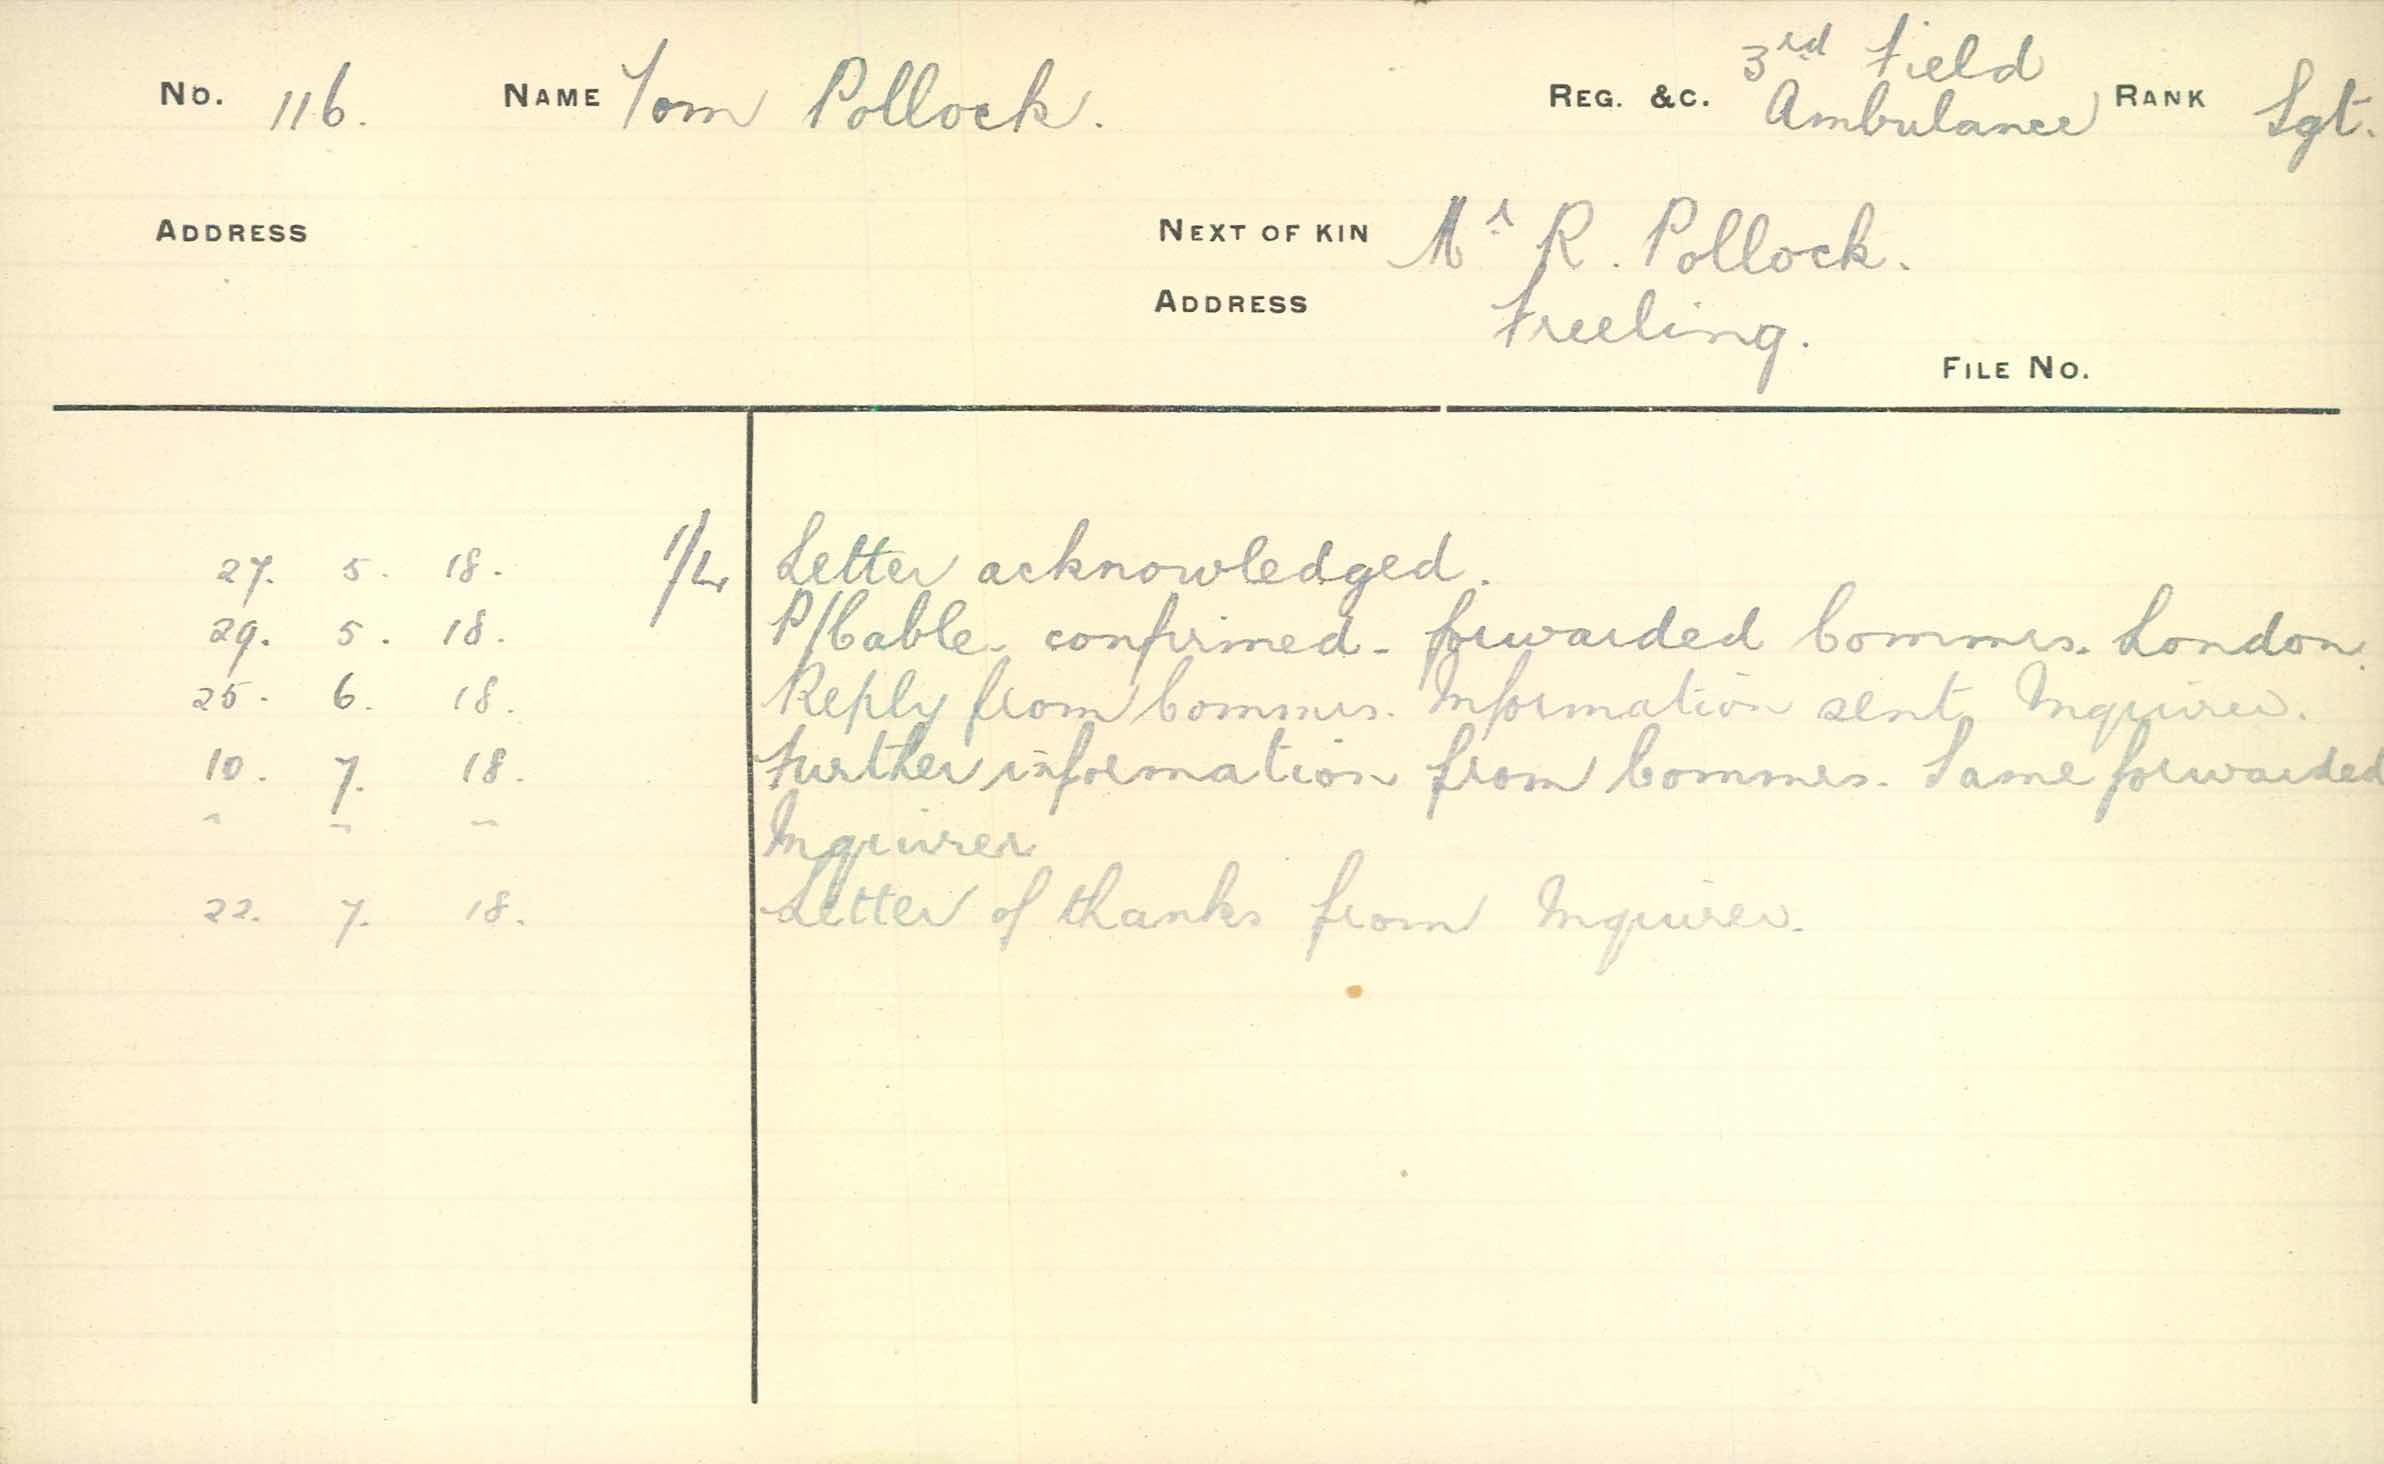 No. 116. NAME Tom Pollock. REG. &C. 3rd Field Ambulance RANK Sgt.
ADDRESS NEXT OF KIN Mr R. Pollock.
ADDRESS Freeling.
FILE No.
27. 5. 18. Letter acknowledged.
29. 5. 18. P/Cable. confirmed - forwarded Commrs. London.
25. 6. 18. Reply from Commrs. Information sent Inquirer.
10. 7. 18. Further information from Commrs. Same forwarded
" " " Inquirer
22. 7. 18. Letter of thanks from Inquirer.